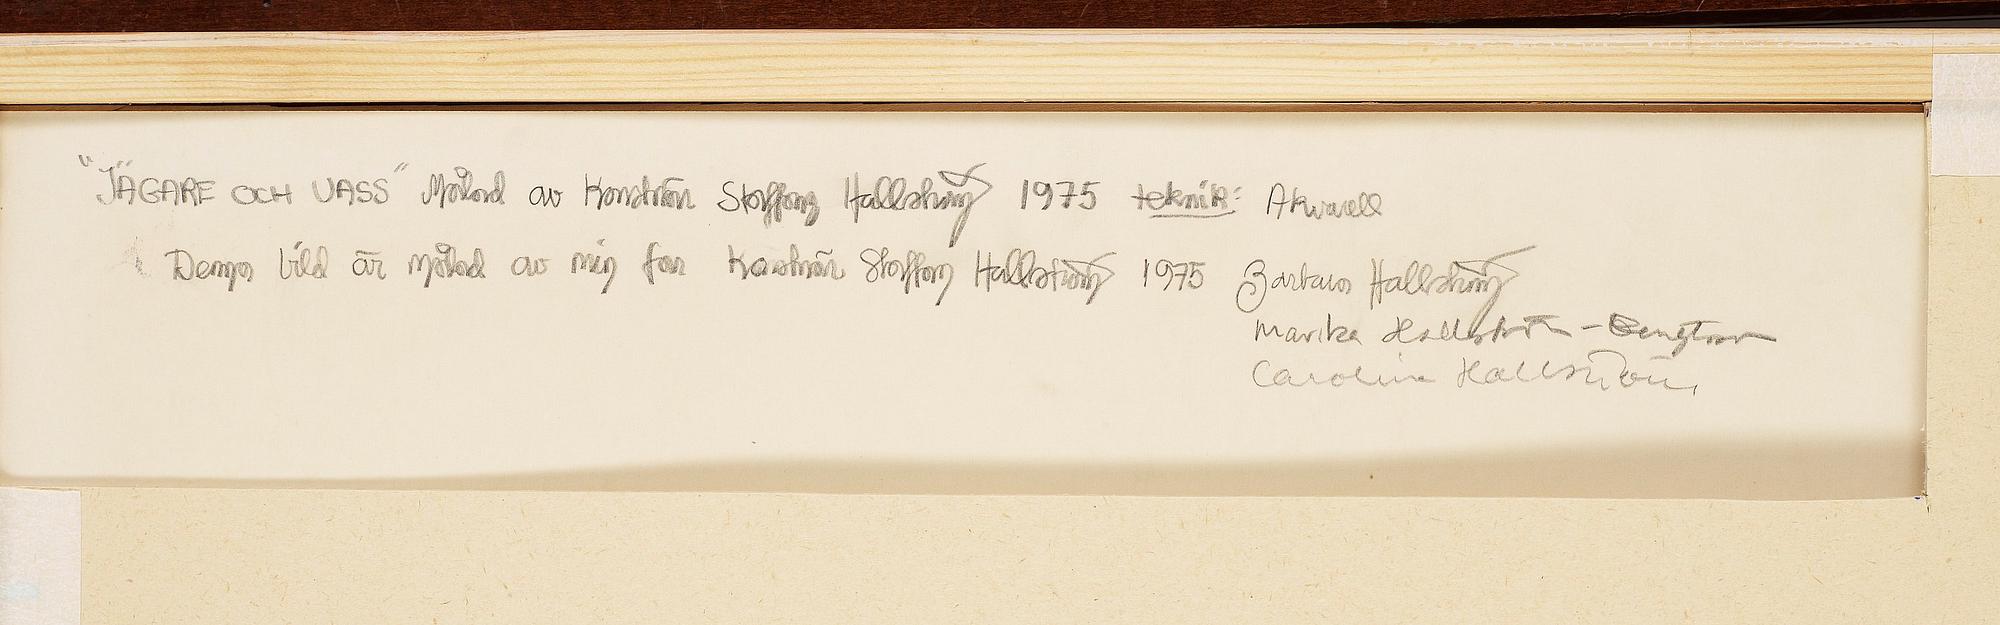 "JÄGARE OCH VASS" Målad av Konstnär Staffan Hallström 1975 teknik: Akvarell
Denna bild är målad av min far Konstnär Staffan Hallström 1975 Barbara Hallström
Marika Hallström-Bengtsson
Carolina Hallström